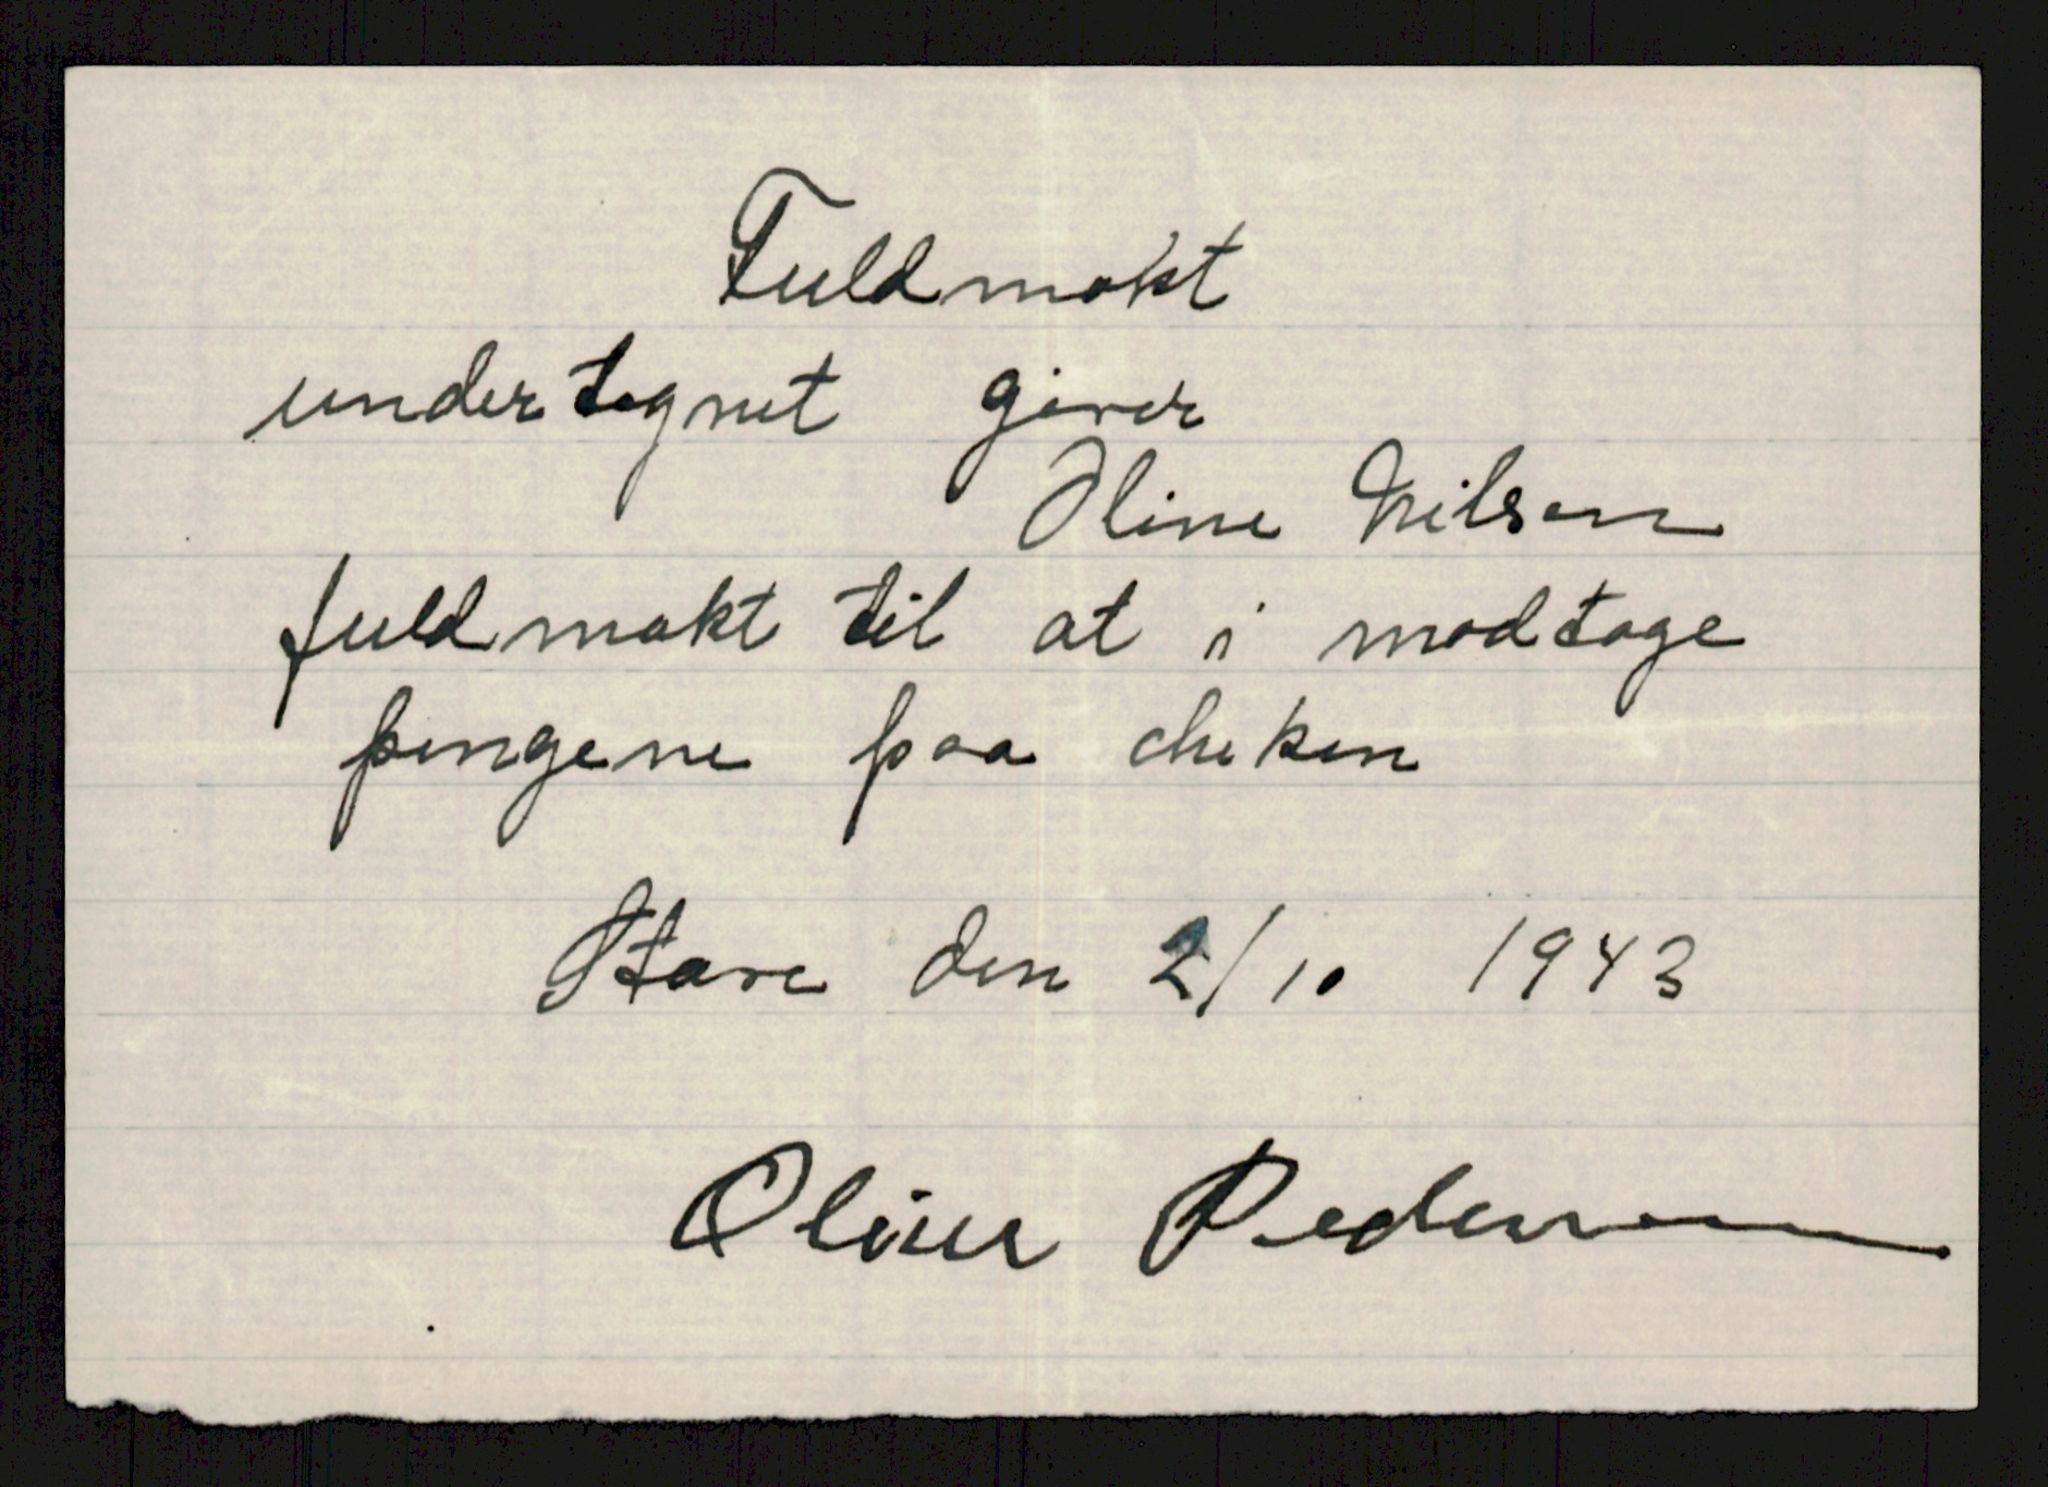 Fuldmakt
undertegnet giver
Oline Nilsen
fuldmakt til at i modtage
pengene paa cheken
Stave den 2/10 1943
Olius Pedersen